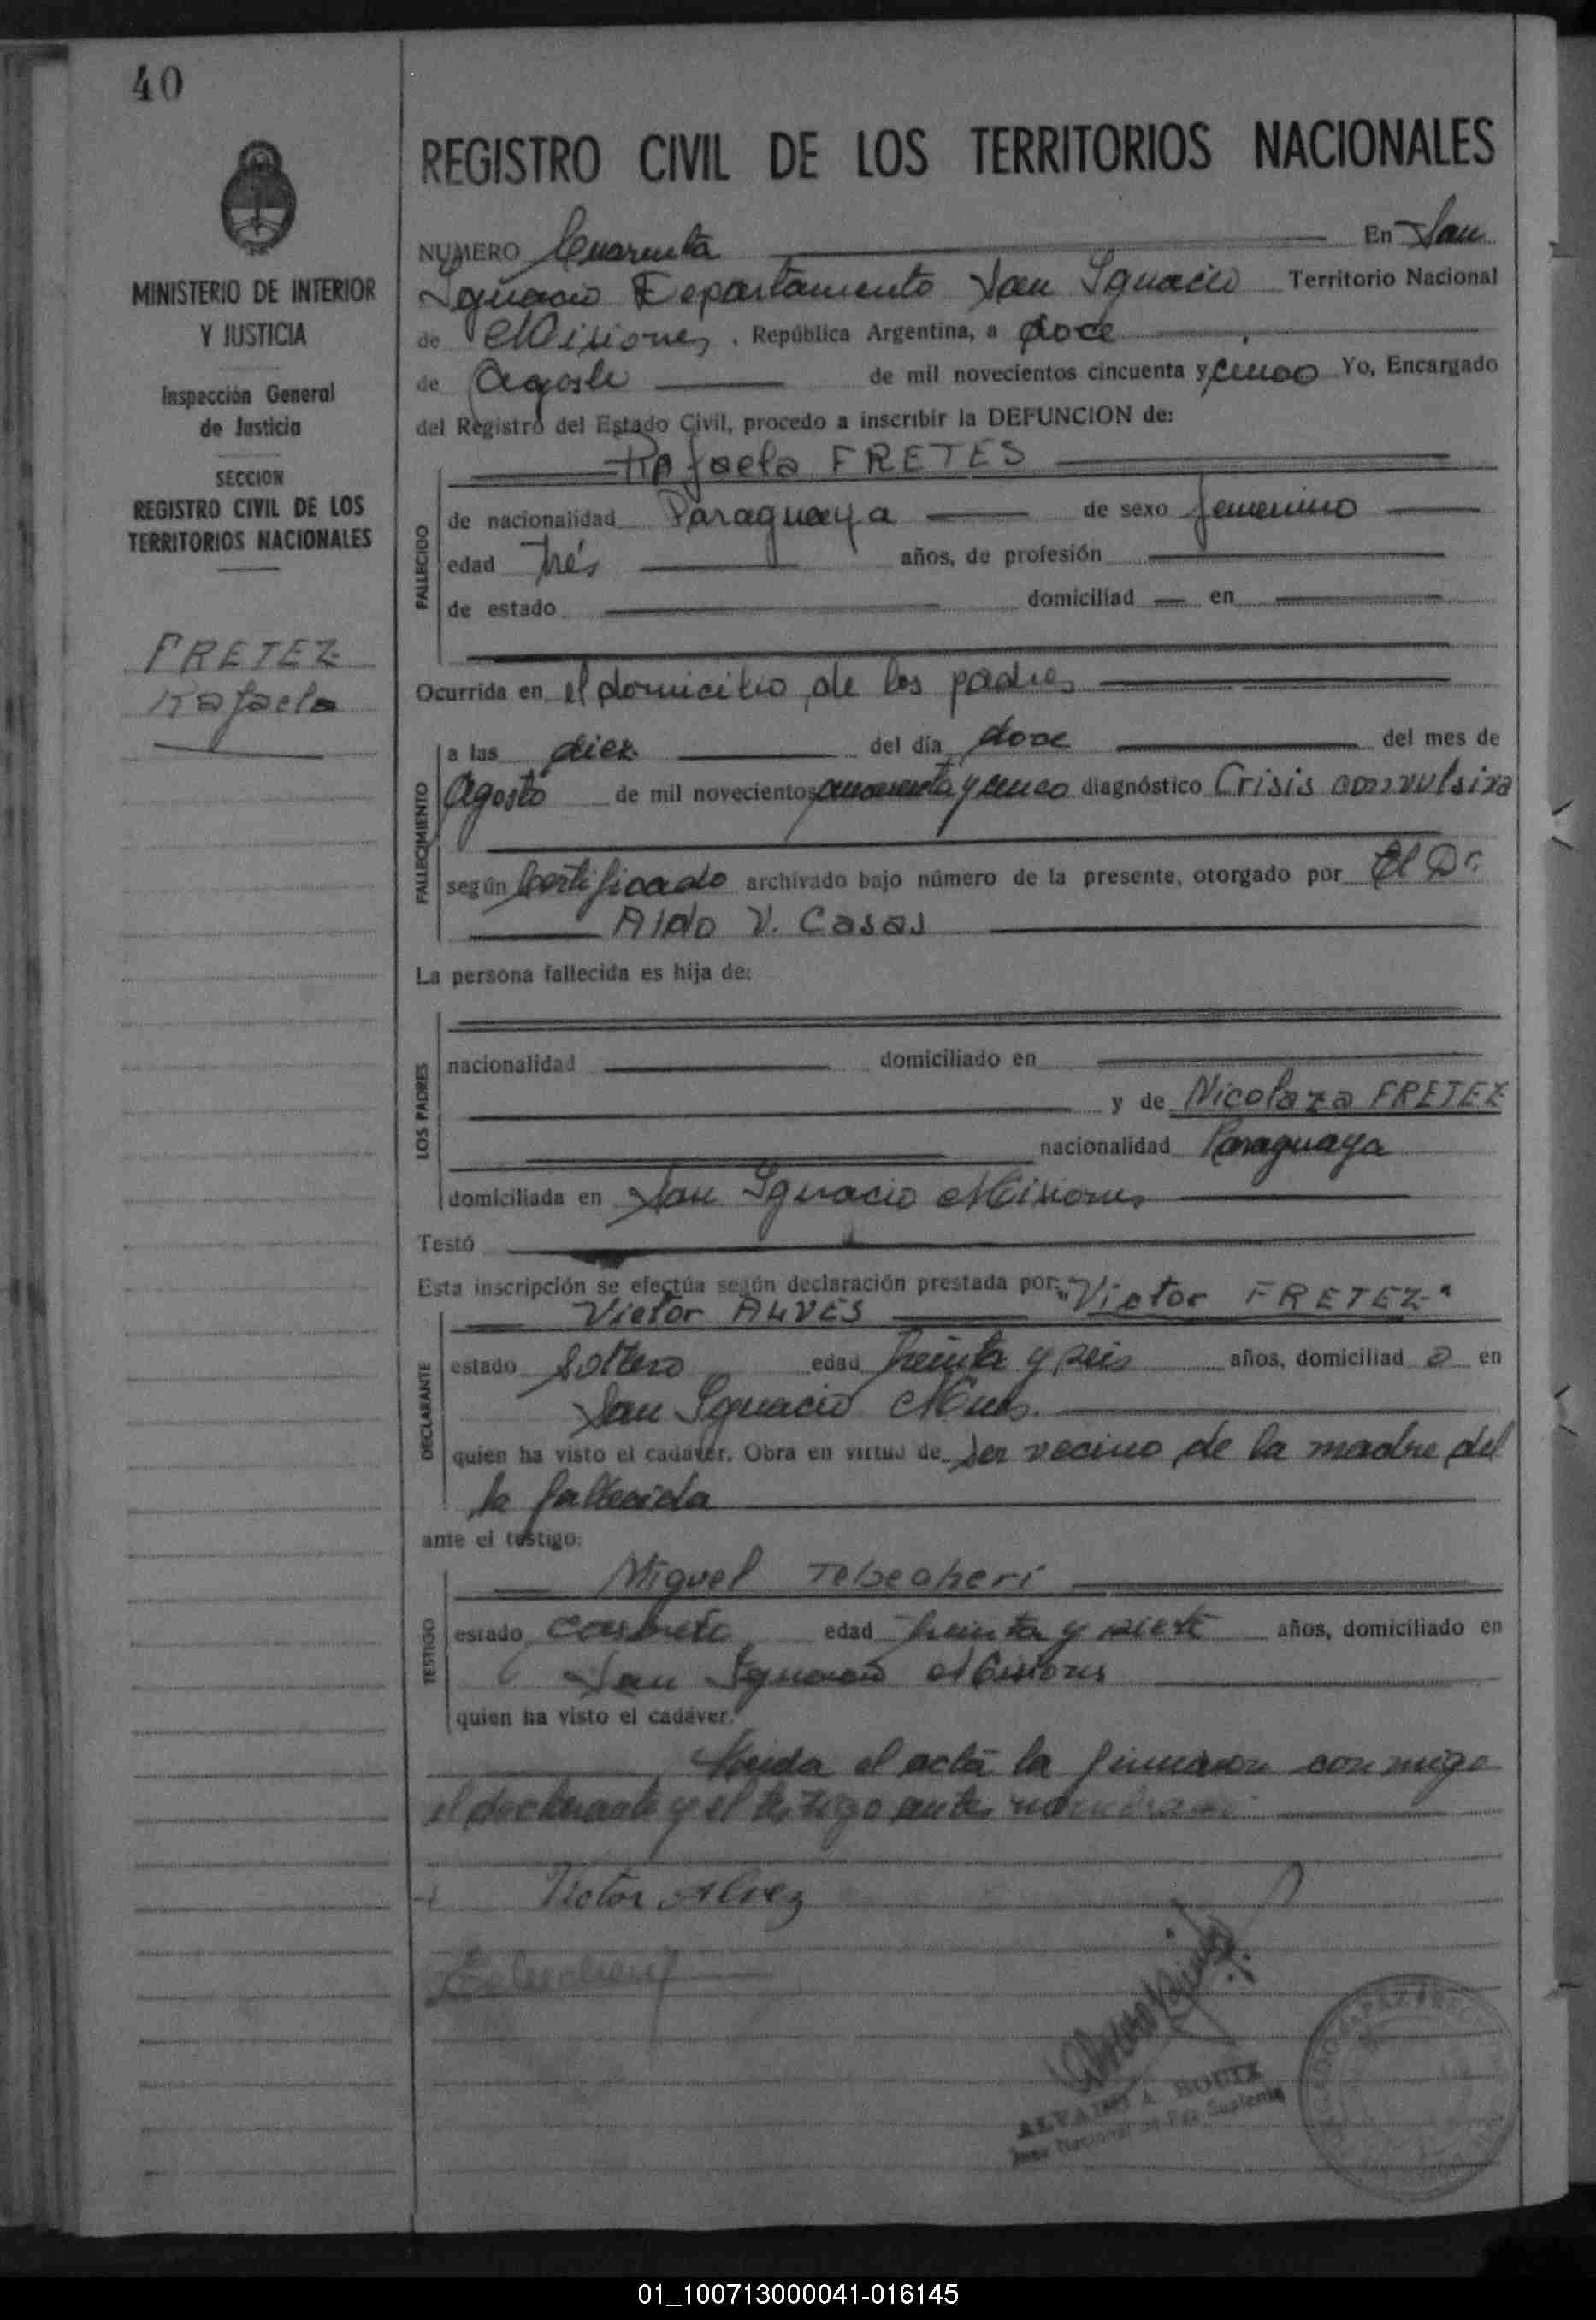 40
MINISTERIO DE INTERIOR
Y JUSTICIA
Inspección General
de Justicia
SECCION
REGISTRO CIVIL DE LOS
TERRITORIOS NACIONALES
FRETEZ
Rafaela
REGISTRO CIVIL DE LOS TERRITORIOS NACIONALES
NUMERO Cuarenta En San
Ignacio Departamento San Ignacio Territorio Nacional
de Misiones, República Argentina, a doce
de Agosto de mil novecientos cincuenta y cinco Yo, Encargado
del Registro del Estado Civil, procedo a inscribir la DEFUNCION de:
Rafaela FRETES
FALLECIDO
de nacionalidad Paraguaya de sexo femenino
edad trés años, de profesión
de estado domiciliad en
Ocurrida en el domicilio de los padres
FALLECIMIENTO
a las diez del día doce del mes de
Agosto de mil novecientos cincuenta y cinco diagnóstico Crisis convulsiva
según Certificado archivado bajo número de la presente, otorgado por El Dr.
Aldo V. Casas
La persona fallecida es hija de:
LOS PADRES
nacionalidad domiciliado en
y de Nicolaza FRETEZ
nacionalidad Paraguaya
domiciliada en San Ignacio Misiones
Testó
Esta inscripción se efectúa según declaración prestada por: "Victor FRETEZ"
Victor ALVES
DECLARANTE
estado Soltero edad treinta y seis años, domiciliad o en
San Ignacio Mnes.
quien ha visto el cadáver. Obra en virtud de ser vecino de la madre del
la fallecida
ante el testigo:
Miguel Tebecheri
TESTIGO
estado casado edad treinta y siete años, domiciliado en
San Ignacio Misiones
quien ha visto el cadáver.
Leida el acta la firmaron conmigo
el declarante y el testigo antes nombrado
Victor Alvez
ALVARO A.
Juez Nacional de Paz Suplente